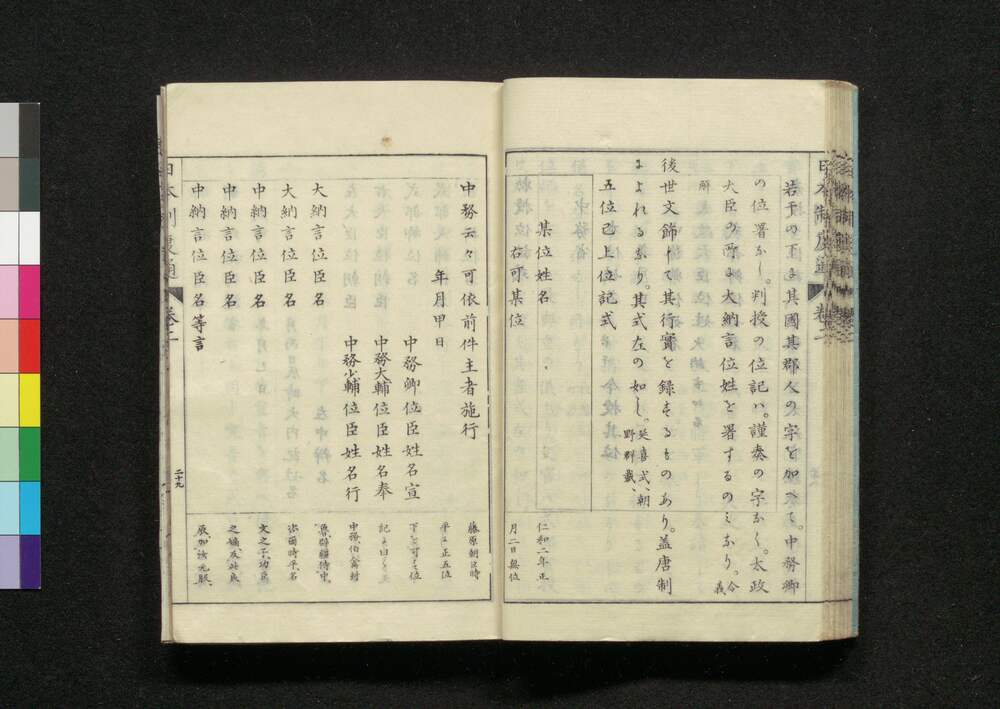 若干の下に其國某郡人の字を加へて。中務卿
の位署なし。判授の位記ハ。謹奏の字なく。太政
大臣の所に大納言位姓を署するのミなり。令義
解
後世文飾して其行實を録するものあり。蓋唐制
によれるなり。其式左の如し。延喜式、朝
野群載、
五位已上位記式
某位姓名
右可某位
仁和二年正
月二日與位
中務云々可依前件主者施行
年月甲日
中務卿位臣姓名宣
中務大輔位臣姓名奉
中務少輔位臣姓名行
大納言位臣名
大納言位臣名
中納言位臣名
中納言位臣名
中納言位臣名等言
藤原朝臣時
平に正五位
下を可する位
記に曰く
中務
治爾時平名
文之子、功臣
日本制度通
卷二
二十九